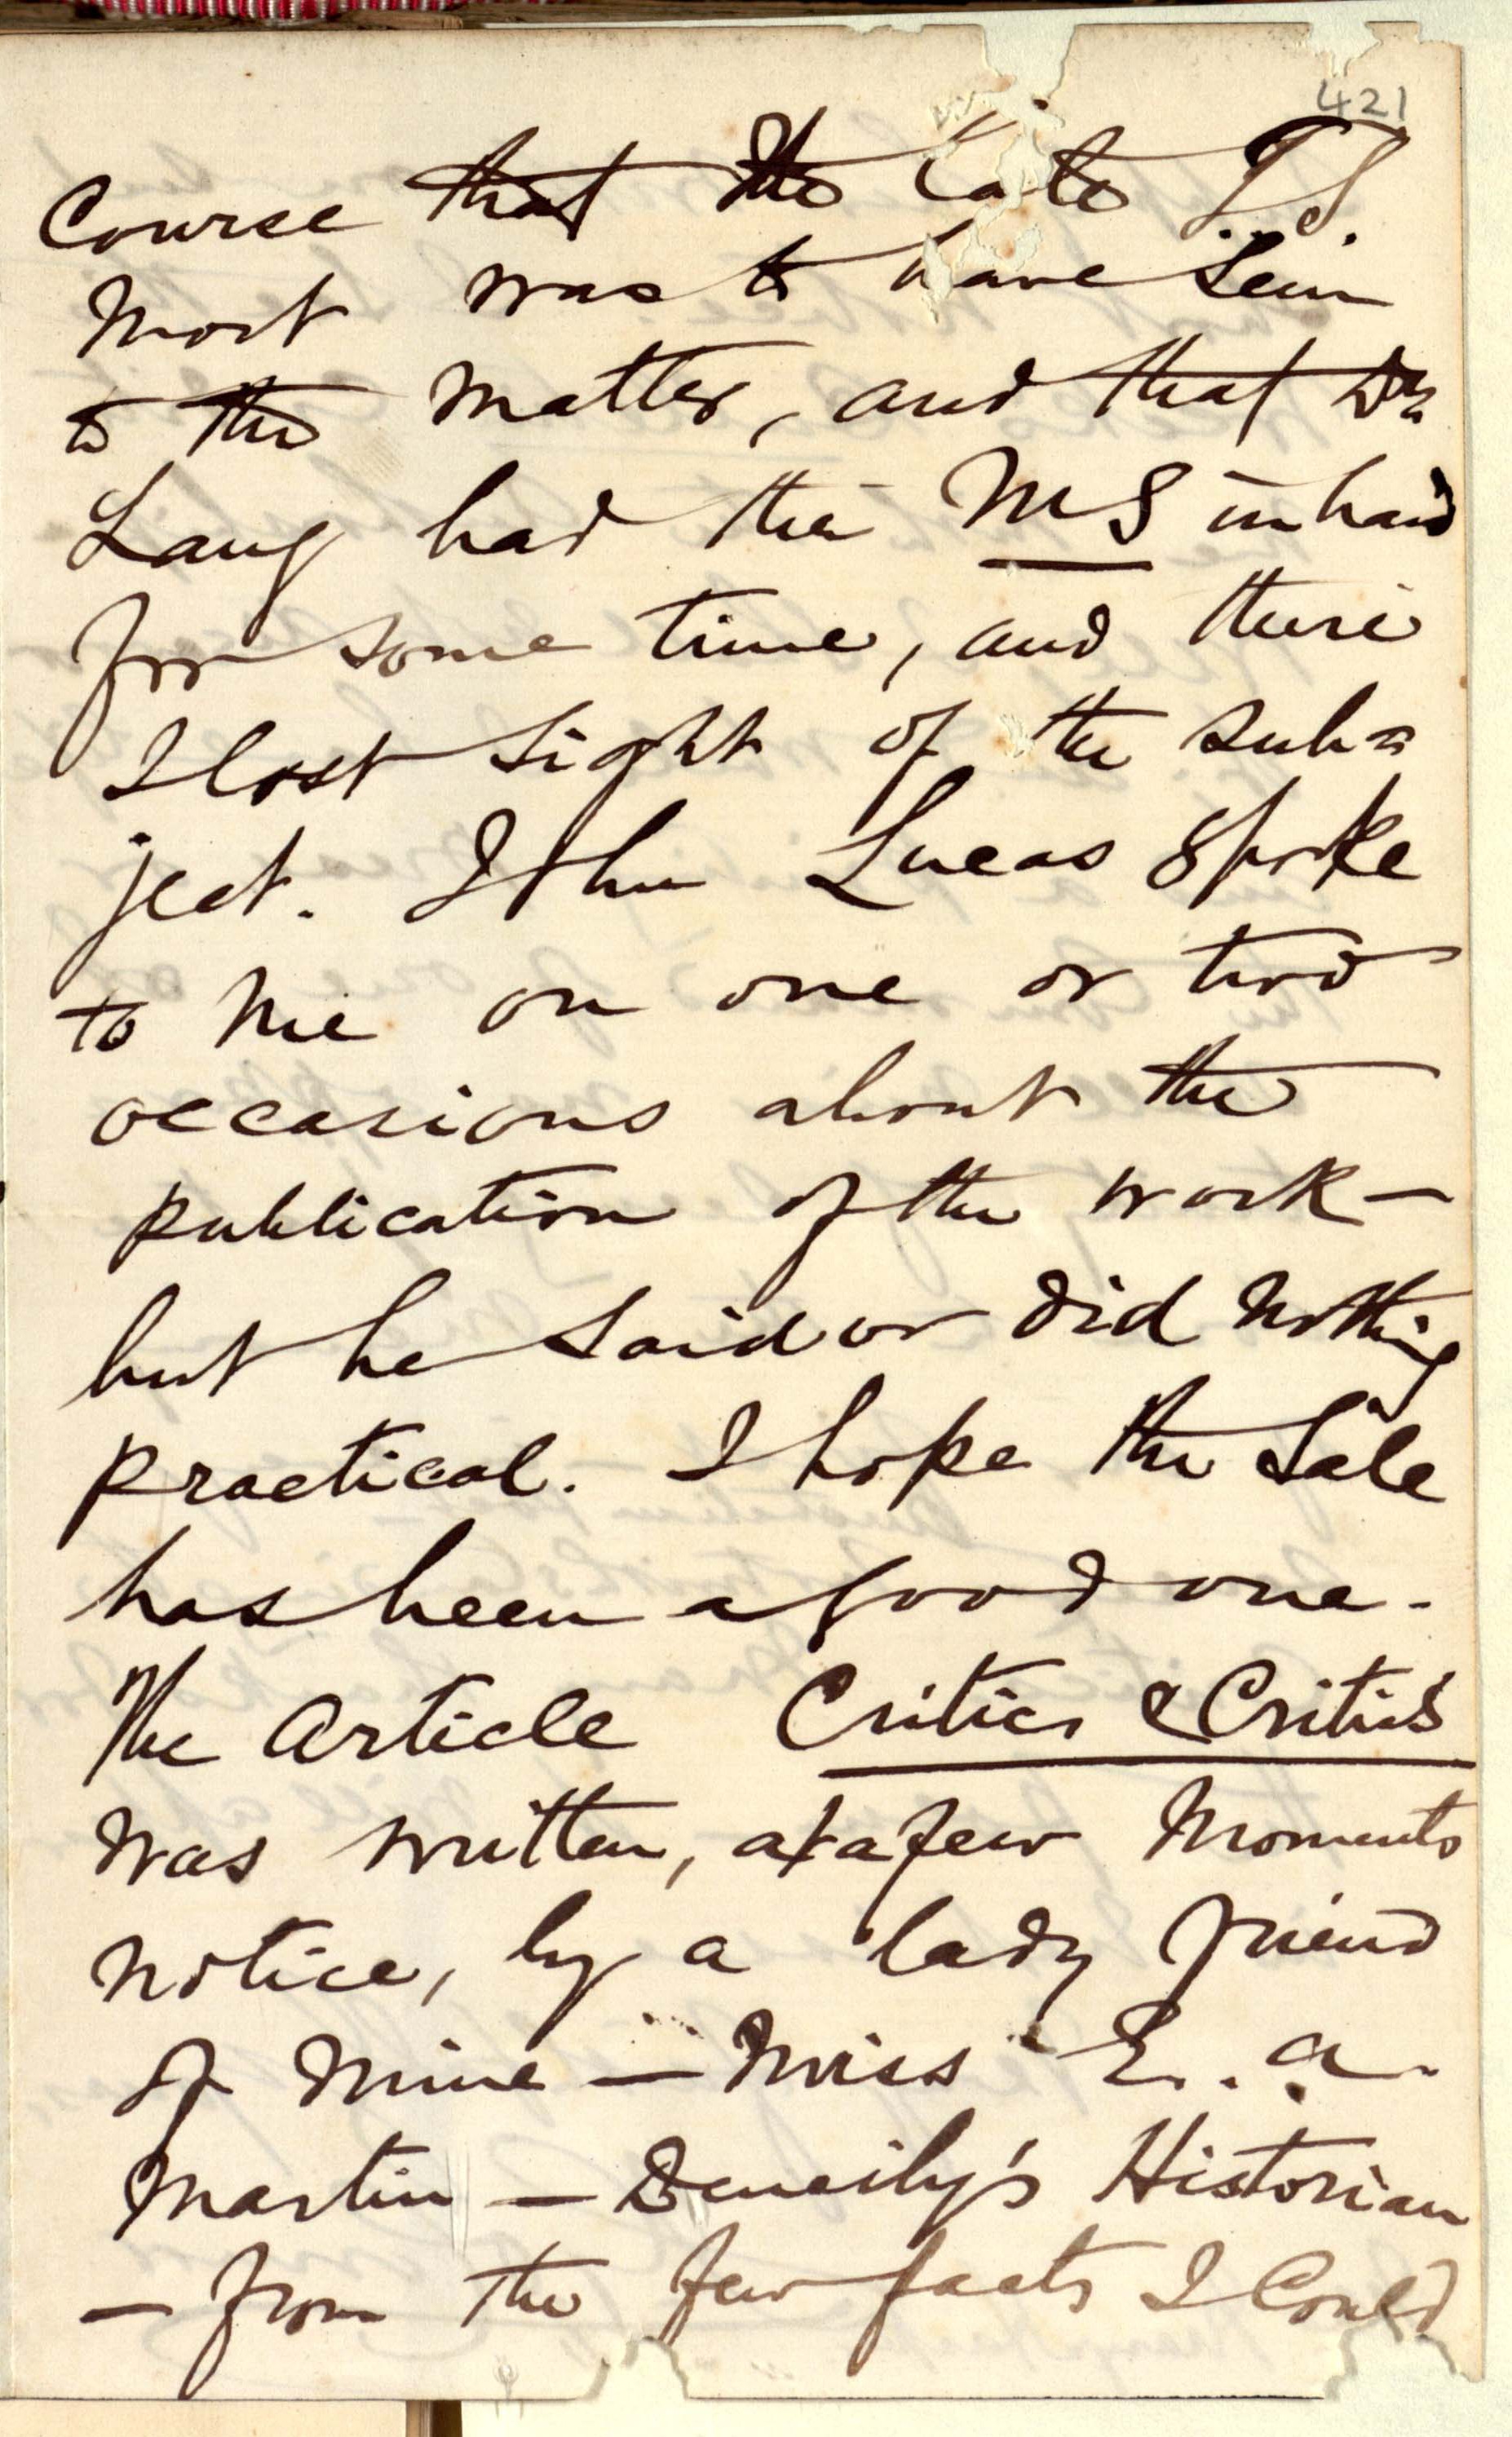 421
Course that the late T.S.
Mort was to have seen
to the matter, and that Dr
Lang had the MS in hand
for some time, and there
I lost sight of the sub=
ject. John Lucas spoke
to me on one or two
occasions about the
publication of the work —
but he said or did nothing
practical. I hope the sale
has been a good one.
The Article Critics & Critics
was written, at a few moments
notice, by a lady friend
of mine — Miss E. A.
Martin — Historian
— from the few facts I could